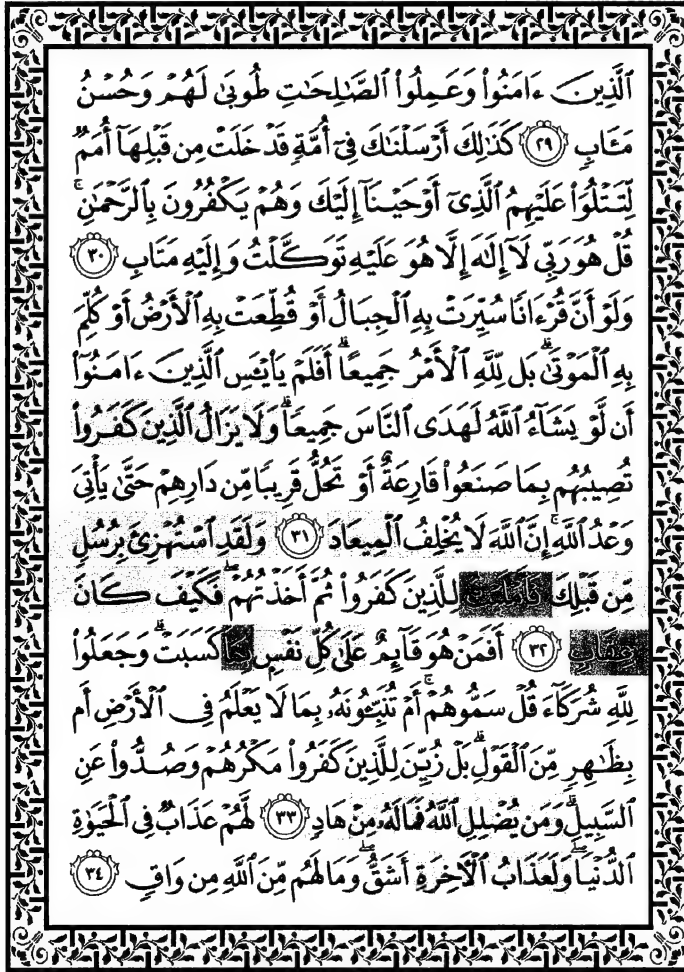 ٱلَّذِينَ ءَامَنُوا۟ وَعَمِلُوا۟ ٱلصَّٰلِحَٰتِ طُوبَىٰ لَهُمْ وَحُسْنُ
مَـَٔابٍ ﴿٢٩﴾ كَذَٰلِكَ أَرْسَلْنَٰكَ فِىٓ أُمَّةٍ قَدْ خَلَتْ مِن قَبْلِهَآ أُمَمٌ
لِّتَتْلُوَا۟ عَلَيْهِمُ ٱلَّذِىٓ أَوْحَيْنَآ إِلَيْكَ وَهُمْ يَكْفُرُونَ بِٱلرَّحْمَٰنِ ۚ
قُلْ هُوَ رَبِّى لَآ إِلَٰهَ إِلَّا هُوَ عَلَيْهِ تَوَكَّلْتُ وَإِلَيْهِ مَتَابِ ﴿٣٠﴾
وَلَوْ أَنَّ قُرْءَانًا سُيِّرَتْ بِهِ ٱلْجِبَالُ أَوْ قُطِّعَتْ بِهِ ٱلْأَرْضُ أَوْ كُلِّمَ
بِهِ ٱلْمَوْتَىٰ ۗ بَل لِّلَّهِ ٱلْأَمْرُ جَمِيعًا ۗ أَفَلَمْ يَا۟يْـَٔسِ ٱلَّذِينَ ءَامَنُوٓا۟
أَن لَّوْ يَشَآءُ ٱللَّهُ لَهَدَى ٱلنَّاسَ جَمِيعًا ۗ وَلَا يَزَالُ ٱلَّذِينَ كَفَرُوا۟
تُصِيبُهُم بِمَا صَنَعُوا۟ قَارِعَةٌ أَوْ تَحُلُّ قَرِيبًا مِّن دَارِهِمْ حَتَّىٰ يَأْتِىَ
وَعْدُ ٱللَّهِ ۚ إِنَّ ٱللَّهَ لَا يُخْلِفُ ٱلْمِيعَادَ ﴿٣١﴾ وَلَقَدِ ٱسْتُهْزِئَ بِرُسُلٍ
مِّن قَبْلِكَ فَأَمْلَيْتُ لِلَّذِينَ كَفَرُوا۟ ثُمَّ أَخَذْتُهُمْ ۖ فَكَيْفَ كَانَ
عِقَابِ ﴿٣٢﴾ أَفَمَنْ هُوَ قَآئِمٌ عَلَىٰ كُلِّ نَفْسٍۭ بِمَا كَسَبَتْ ۗ وَجَعَلُوا۟
لِلَّهِ شُرَكَآءَ قُلْ سَمُّوهُمْ ۚ أَمْ تُنَبِّـُٔونَهُۥ بِمَا لَا يَعْلَمُ فِى ٱلْأَرْضِ أَم
بِظَٰهِرٍ مِّنَ ٱلْقَوْلِ ۗ بَلْ زُيِّنَ لِلَّذِينَ كَفَرُوا۟ مَكْرُهُمْ وَصُدُّوا۟ عَنِ
ٱلسَّبِيلِ ۗ وَمَن يُضْلِلِ ٱللَّهُ فَمَا لَهُۥ مِنْ هَادٍ ﴿٣٣﴾ لَّهُمْ عَذَابٌ فِى ٱلْحَيَوٰةِ
ٱلدُّنْيَا ۖ وَلَعَذَابُ ٱلْءَاخِرَةِ أَشَقُّ ۖ وَمَا لَهُم مِّنَ ٱللَّهِ مِن وَاقٍ ﴿٣٤﴾